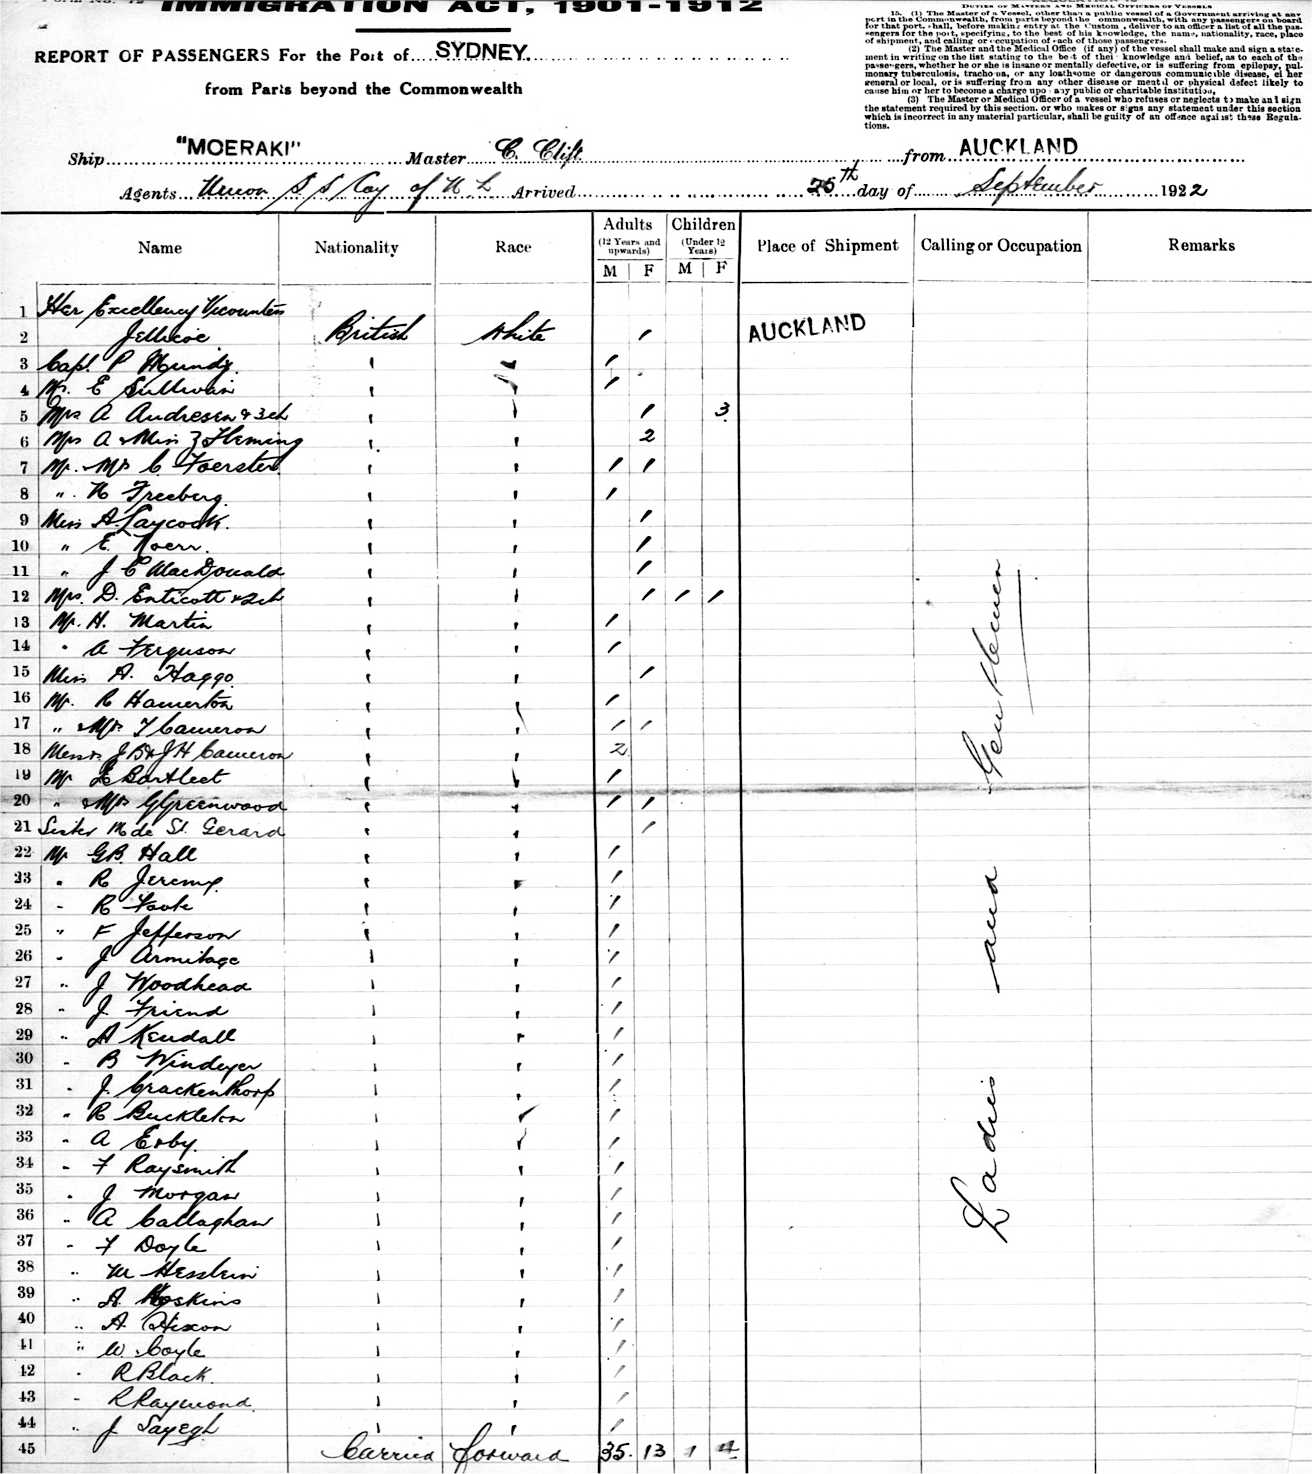 IMMIGRATION ACT, 1901-1912
REPORT OF PASSENGERS For the Port of SYDNEY.
from Parts beyond the Commonwealth
DUTIES OF MASTERS AND MEDICAL OFFICERS OF VESSELS
15. (1) The Master of a Vessel, other than a public vessel of a Government arriving at any
port in the Commonwealth, from parts beyond the Commonwealth, with any passengers on board
for that port, shall, before making entry at the Customs, deliver to an officer a list of all the pas-
sengers for the port, specifying, to the best of his knowledge, the name, nationality, race, place
of shipment, and calling or occupation of each of those passengers.
(2) The Master and the Medical Office (if any) of the vessel shall make and sign a state-
ment in writing on the list stating to the best of their knowledge and belief, as to each of the
passengers, whether he or she is insane or mentally defective, or is suffering from epilepsy, pul-
monary tuberculosis, trachoma, or any loathsome or dangerous communicable disease, either
general or local, or is suffering from any other disease or mental or physical defect likely to
cause him or her to become a charge upon any public or charitable institution.
(3) The Master or Medical Officer of a vessel who refuses or neglects to make and sign
the statement required by this section, or who makes or signs any statement under this section
which is incorrect in any material particular, shall be guilty of an offence against these Regula-
tions.
Ship "MOERAKI" Master C. Clift from AUCKLAND
Agents Union S S Coy of N Z Arrived 26th day of September 1922
Name Nationality Race Adults (12 Years and upwards) M F Children (Under 12 Years) M F Place of Shipment Calling or Occupation Remarks
1 Her Excellency Vicountess
2 Jellicoe British White 1 AUCKLAND
3 Capt. P Mundy 1
4 Mr. E Sullivan 1
5 Mrs A Andresen & 3ch 1 3
6 Mrs A & Miss Z Fleming 2
7 Mr. & Mrs C. Foerster 1 1
8 " N Freeberg 1
9 Miss A. Laycock. 1
10 " E. Noerr. 1
11 " J C MacDonald 1
12 Mrs. D. Enticott & 2ch 1 1 1
13 Mr. H. Martin 1
14 " A Ferguson 1
15 Miss A. Haggo 1
16 Mr. R Hamerton 1
17 " & Mrs. T Cameron 1 1
18 Messrs J B & J H Cameron 2
19 Mr L Bartleet 1
20 " & Mrs G Greenwood 1 1
21 Sister M de St. Gerard 1
22 Mr G B. Hall 1
23 " R Jeremy 1
24 " R Foote 1
25 " F Jefferson 1
26 " J Armitage 1
27 " J Woodhead 1
28 " J. Friend 1
29 " A Kendall 1
30 " B Windeyer 1
31 " J. Crackenthorp 1
32 " R Buckleton 1
33 " A Erby. 1
34 " F Raysmith 1
35 " J Morgan 1
36 " A Callaghan 1
37 " F Doyle 1
38 " M Hesslein 1
39 " A. Hoskins 1
40 " A. Hixon 1
41 " W. Coyle 1
42 " R Black. 1
43 " R Raymond. 1
44 " J Sayegh 1
45 Carried forward 35. 13 1 4
Ladies and Gentlemen